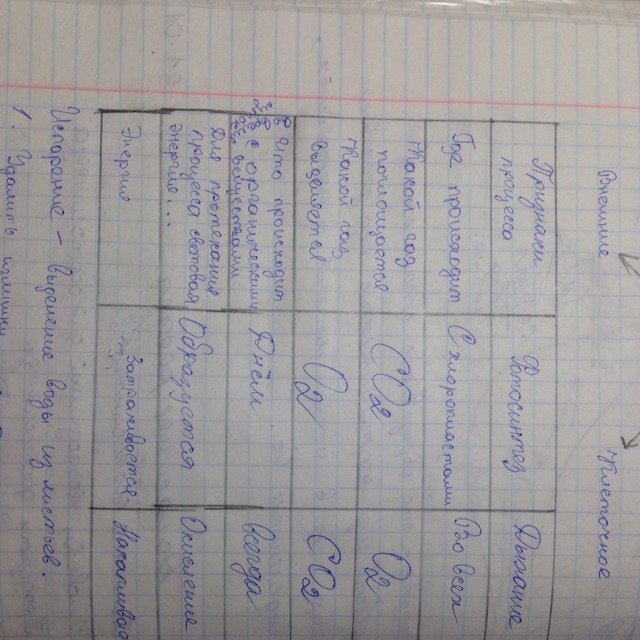 Внешние
Клеточное
Признаки
процесса
Фотосинтез
Дыхание
Где происходит
С хлоропластами
Во всех
Какой газ
поглощается
CO2
O2
Какой газ
выделяется
O2
CO2
Что происходит
с органическими
веществами
Днём
Всегда
Для протекания
процесса световая
энергия...
Образуется
Окисление
Энергия
Затрачивается
Испорение - выделение воды из листьев.
1. Удалить излишки